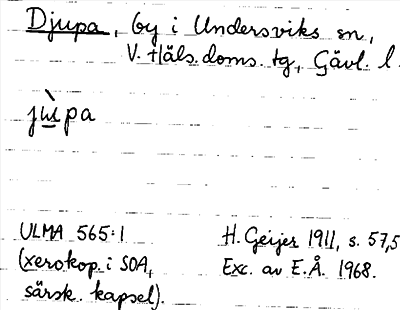 Djupa, by i Undersviks sn,
V. Häls. doms. tg, Gävl. l.
jùpa
ULMA 565:1
(xerokop. i SOA,
särsk. kapsel).
H. Geijer 1911, s. 57,5
Exc. av E.Å. 1968.